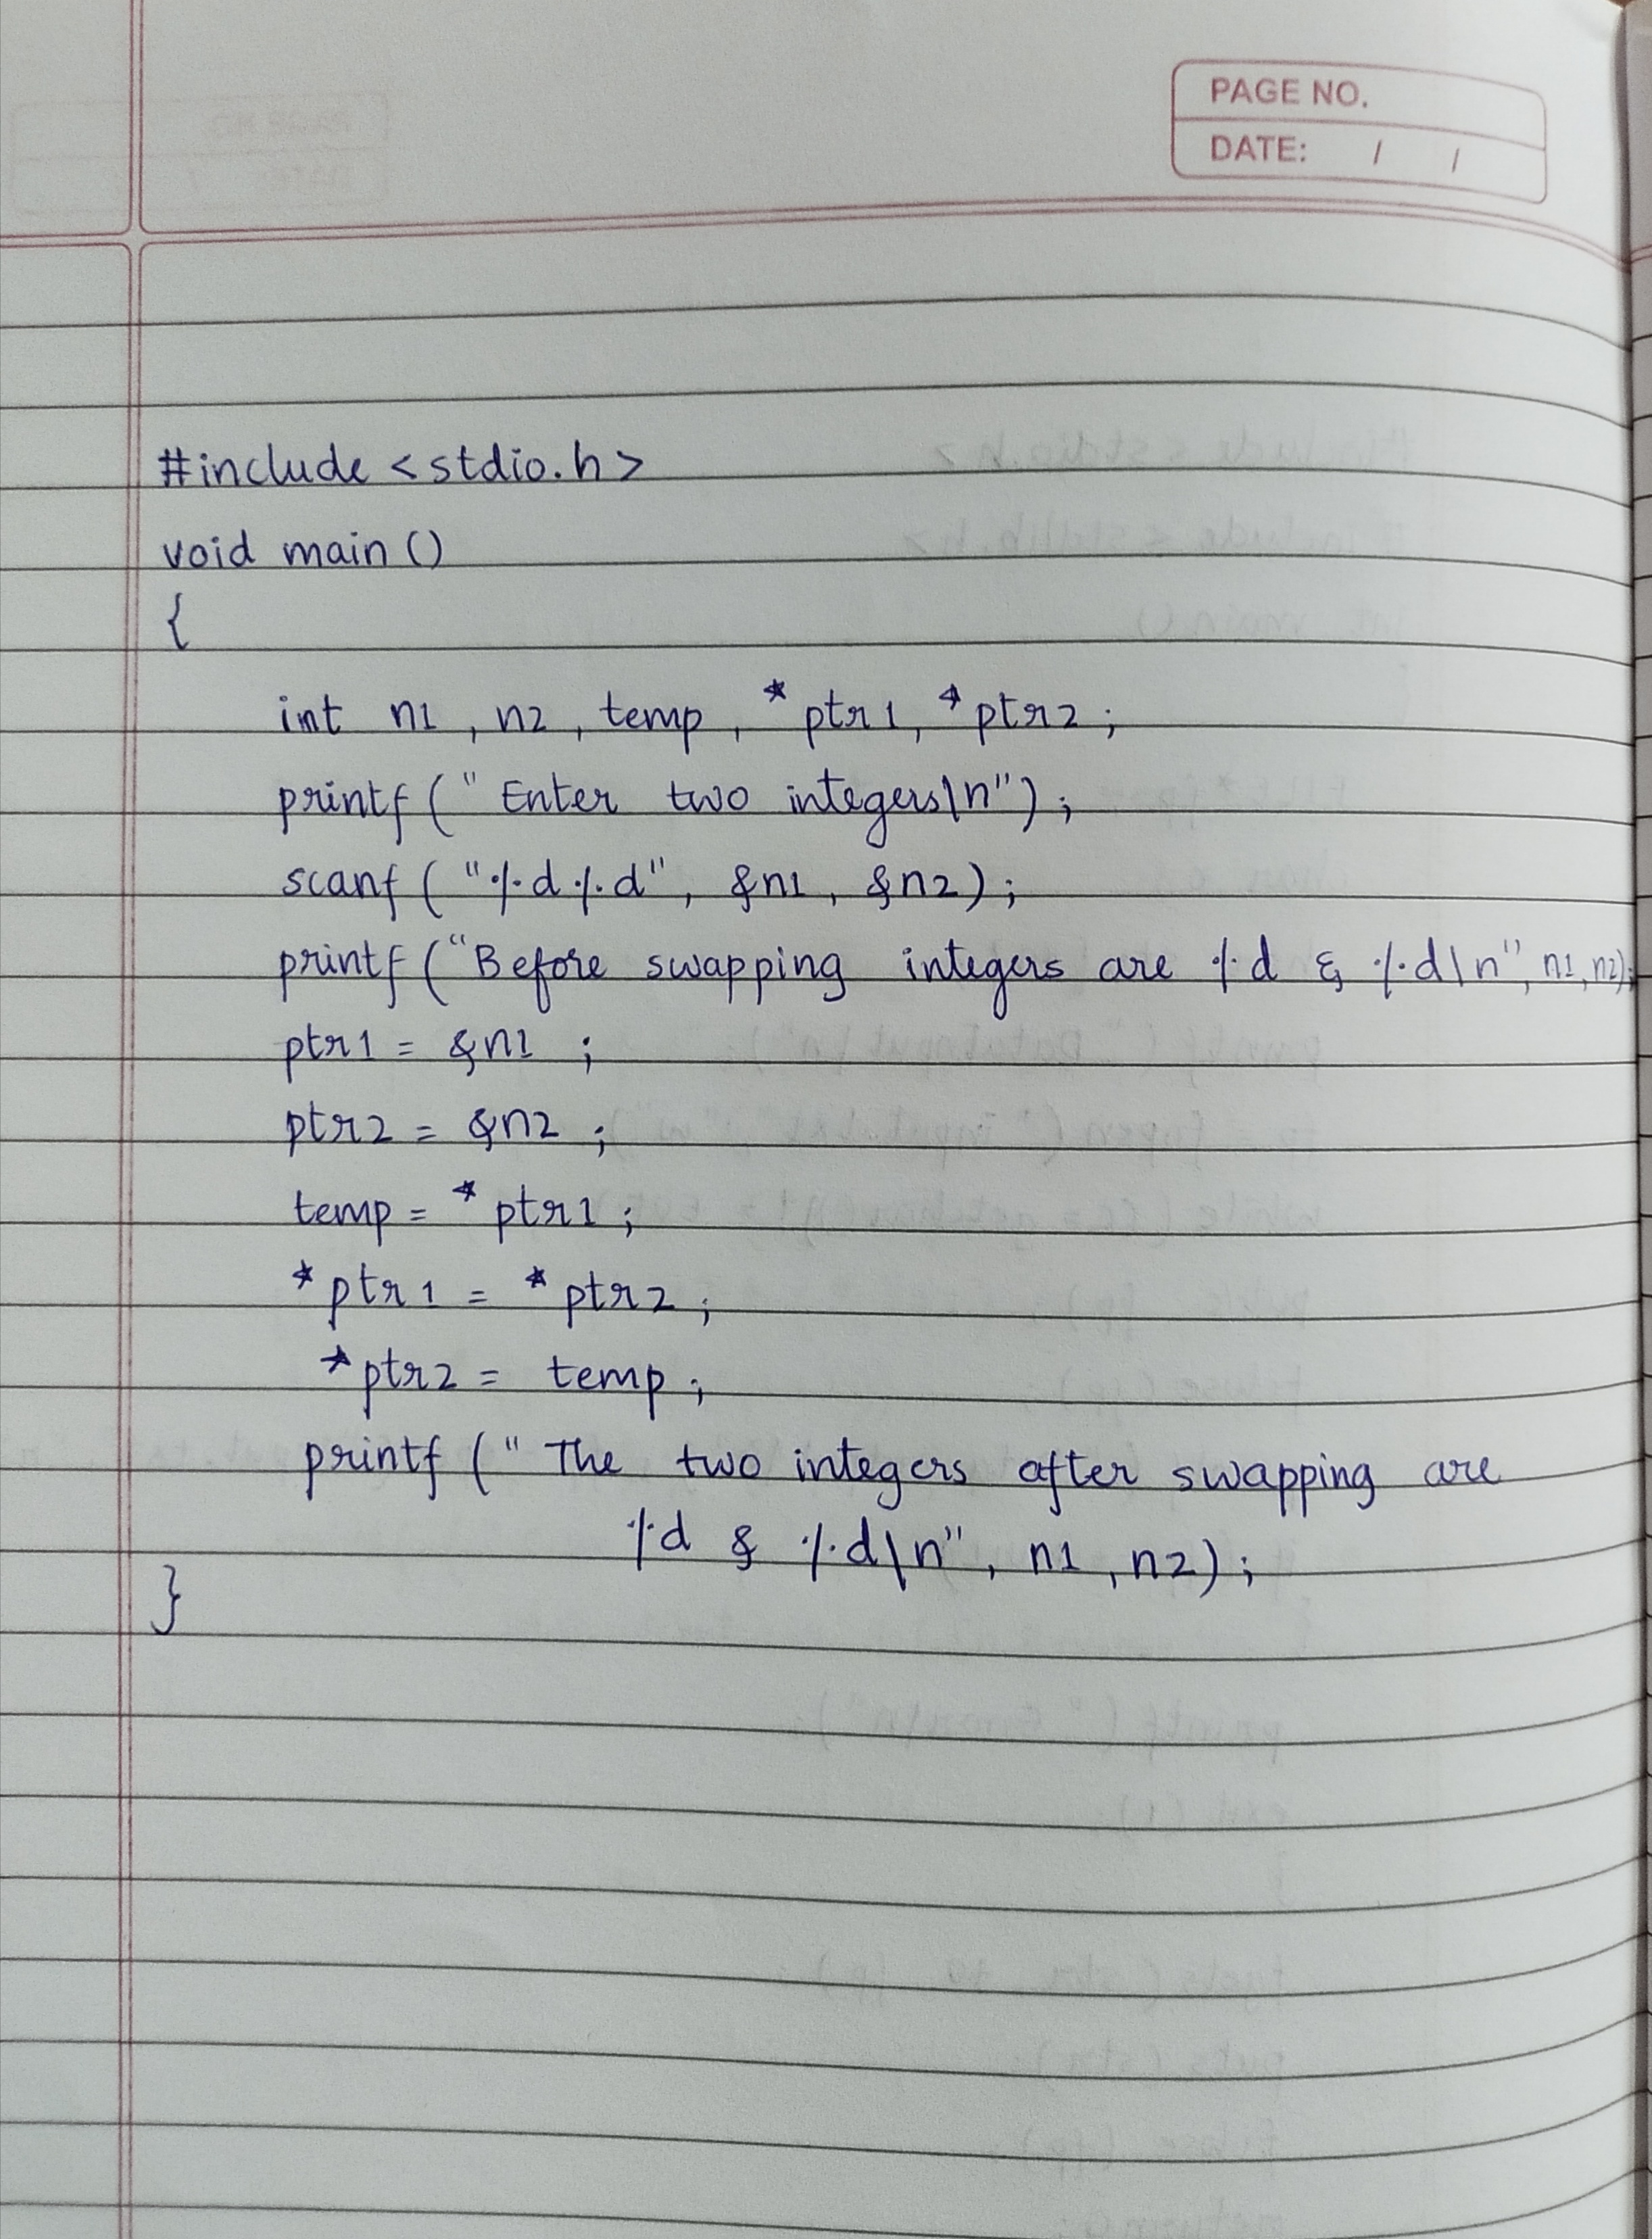 PAGE NO.
DATE: / /
#include <stdio.h>
void main ()
{
int n1, n2, temp, *ptr1, *ptr2;
printf (" Enter two integers\n");
scanf ("%d%d", &n1, &n2);
printf ("Before swapping integers are %d & %d\n", n1, n2);
ptr1 = &n1 ;
ptr2 = &n2 ;
temp = *ptr1;
*ptr1 = *ptr2;
*ptr2 = temp;
printf (" The two integers after swapping are
%d & %d\n", n1, n2);
}